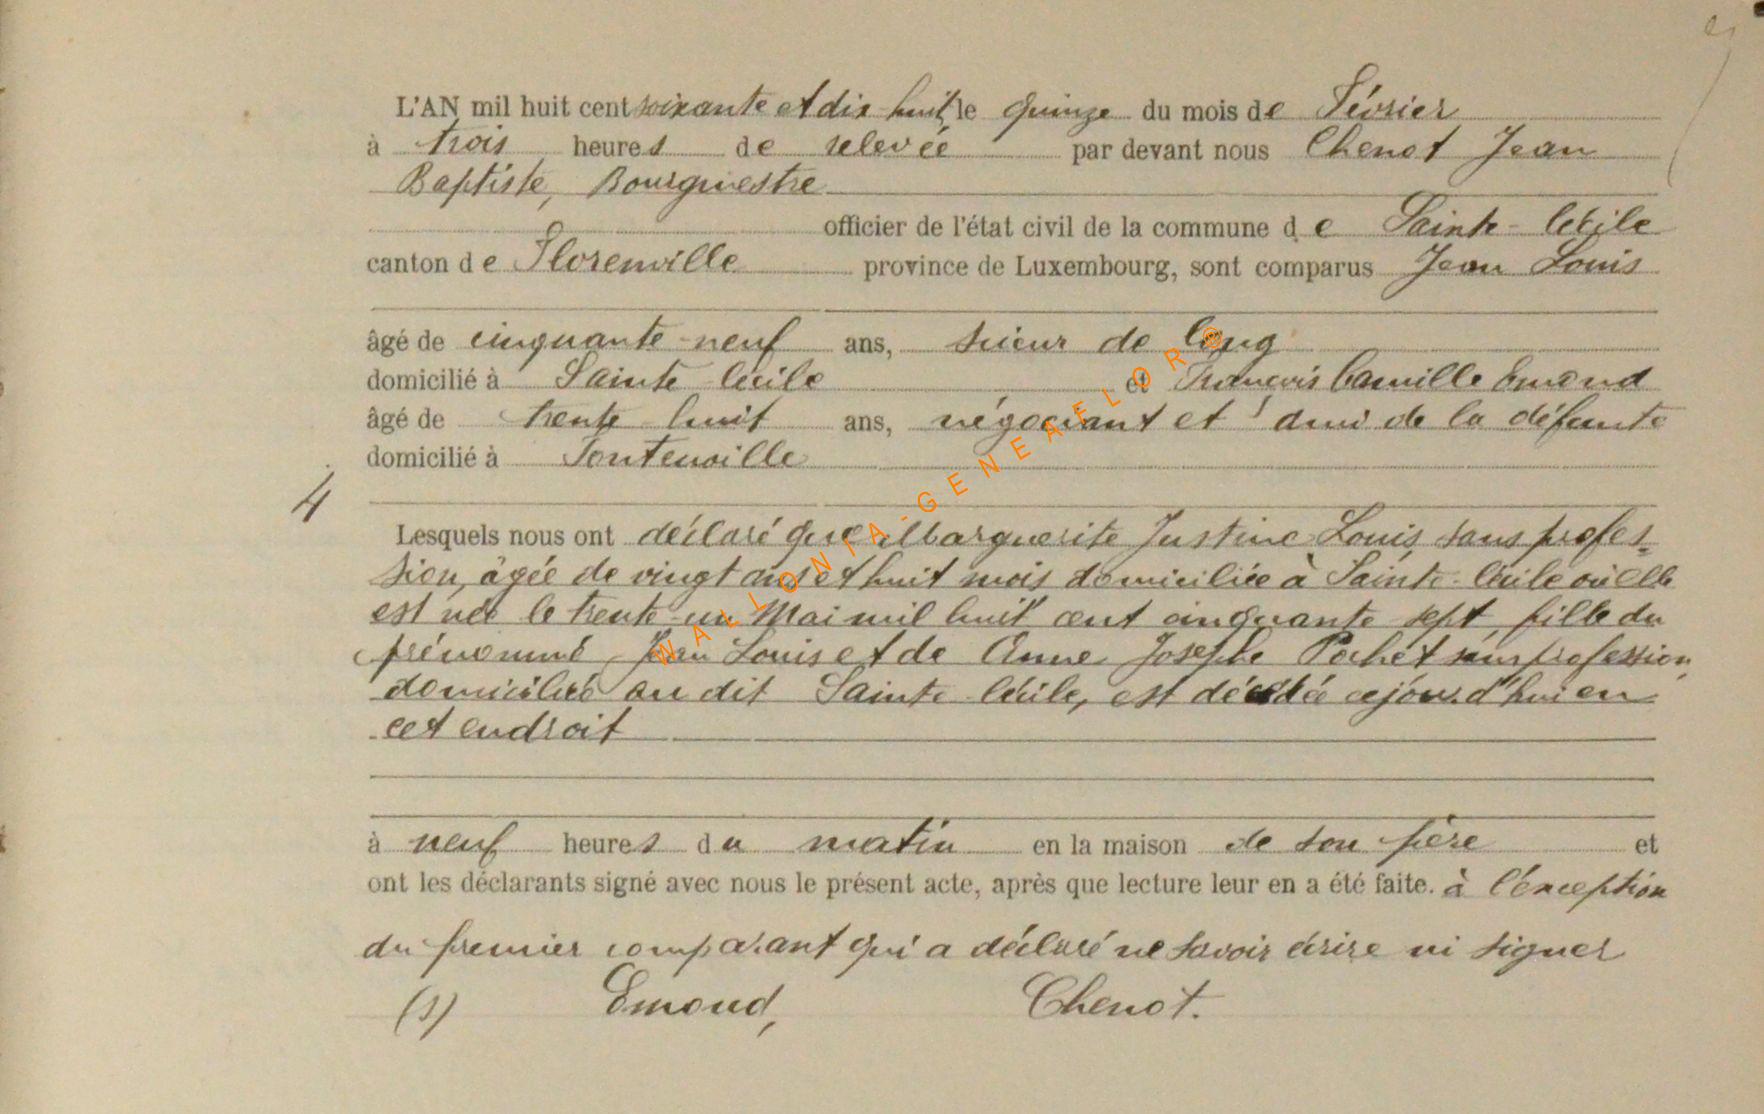 L'AN mil huit cent soixante et dix huit, le quinze du mois de Février
à trois heures de relevée par devant nous Chenot Jean
Baptiste, Bourgmestre
officier de l'état civil de la commune de Sainte-Cécile
canton de Florenville province de Luxembourg, sont comparus Jean Louis
âgé de cinquante-neuf ans, scieur de long
domicilié à Sainte Cécile et François Camille Emond
âgé de trente huit ans, négociant et ami de la défunte
domicilié à Fontenoille
4
Lesquels nous ont déclaré que Marguerite Justine Louis, sans profes-
sion, âgée de vingt ans et huit mois, domiciliée à Sainte-Cécile où elle
est née le trente-un Mai mil huit cent cinquante sept, fille du
prénommé Jean Louis et de Anne Josephe Pochet sans profession,
domiciliés au dit Sainte Cécile, est décédée cejourd'hui en
cet endroit
à neuf heures du matin en la maison de son père et
ont les déclarants signé avec nous le présent acte, après que lecture leur en a été faite. à l'exception
du premier comparant qui a déclaré ne savoir écrire ni signer
(s) Emond, Chenot.
WALLONIA-GENEAFLOR©